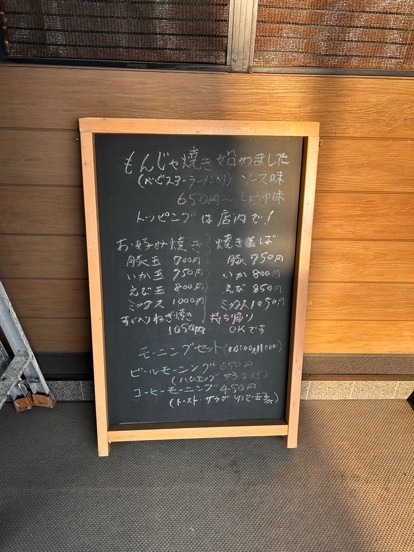 もんじゃ焼き始めました
(ベビースターラーメン入り) ソース味
650円〜 しょうゆ味
トッピングは店内で!
お好み焼き
豚玉 700円
いか玉 750円
えび玉 800円
ミックス 1000円
すじ入りねぎ焼き
1050円
焼きそば
豚 750円
いか 800円
えび 850円
ミックス 1050円
持ち帰り
OKです
モーニングセット
ビールモーニング 650円
(ハムエッグ サラダ
コーヒーモーニング 450円
(トースト サラダ ゆで玉子)